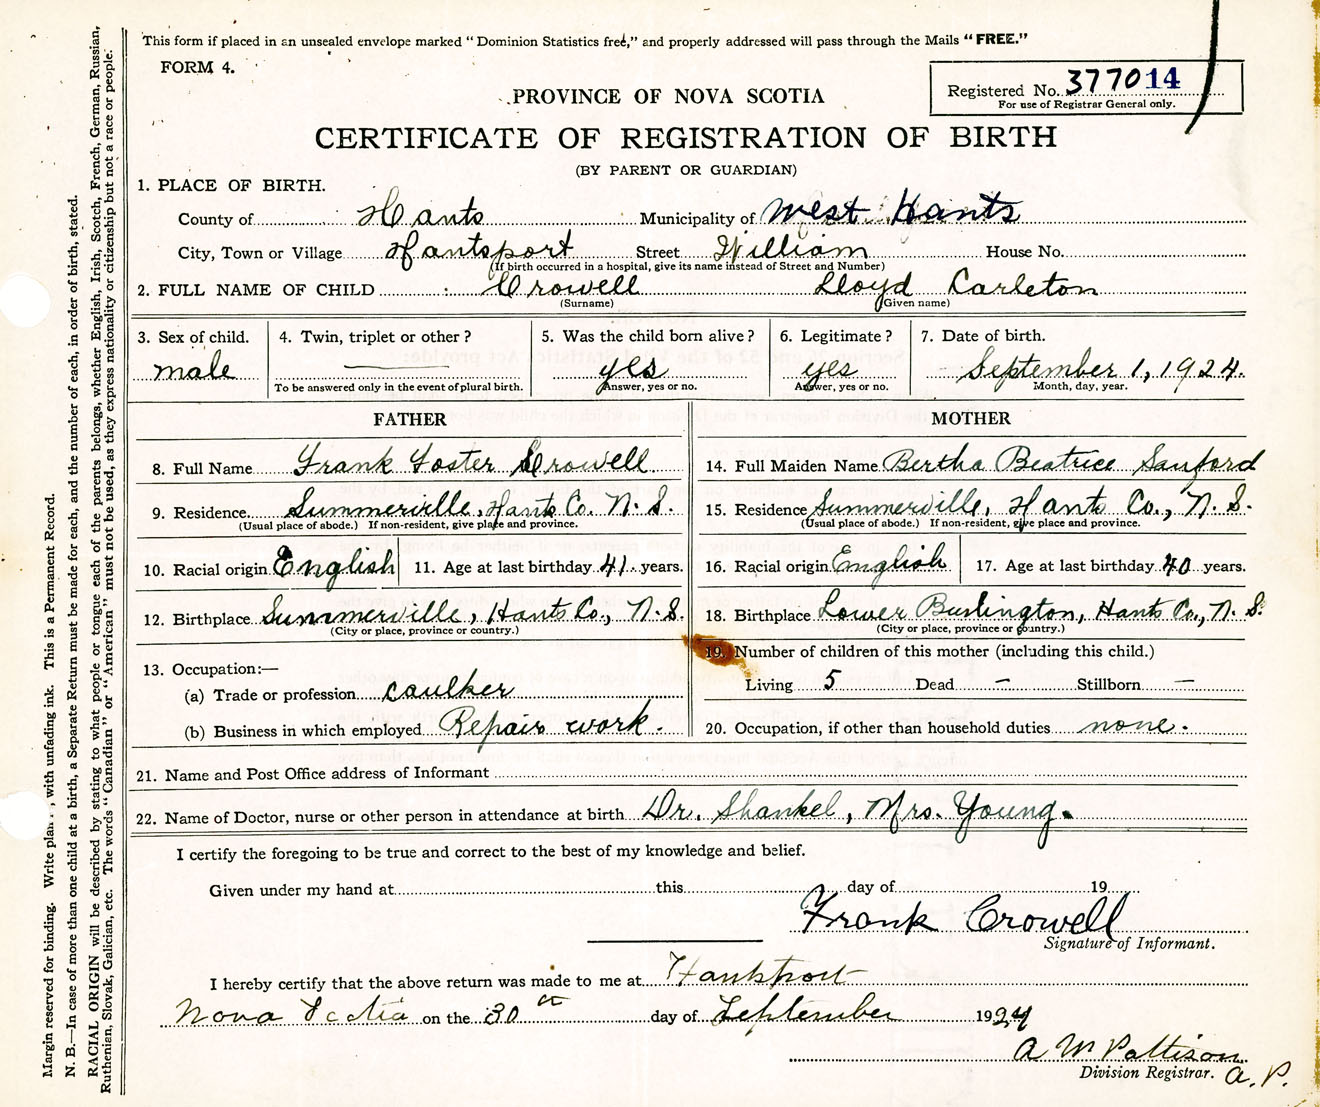 This form if placed in an unsealed envelope marked "Dominion Statistics free," and properly addressed will pass through the Mails "FREE."
FORM 4.
Registered No. 377014
For use of Registrar General only.
PROVINCE OF NOVA SCOTIA
CERTIFICATE OF REGISTRATION OF BIRTH
(BY PARENT OR GUARDIAN)
1. PLACE OF BIRTH.
County of Hants Municipality of West Hants
City, Town or Village Hantsport Street William House No.
(If birth occurred in a hospital, give its name instead of Street and Number)
2. FULL NAME OF CHILD Crowell Lloyd Carleton
(Surname) (Given name)
3. Sex of child. 4. Twin, triplet or other? 5. Was the child born alive? 6. Legitimate? 7. Date of birth.
male — yes yes September 1, 1924.
To be answered only in the event of plural birth. Answer, yes or no. Answer, yes or no. Month, day, year.
FATHER MOTHER
8. Full Name Frank Foster Crowell 14. Full Maiden Name Bertha Beatrice Sanford
9. Residence Summerville, Hants Co. N. S. 15. Residence Summerville, Hants Co., N. S.
(Usual place of abode.) If non-resident, give place and province. (Usual place of abode.) If non-resident, give place and province.
10. Racial origin English 11. Age at last birthday 41 years. 16. Racial origin English 17. Age at last birthday 40 years.
12. Birthplace Summerville, Hants Co., N. S. 18. Birthplace Lower Burlington, Hants Co., N. S.
(City or place, province or country.) (City or place, province or country.)
13. Occupation:— 19. Number of children of this mother (including this child.)
(a) Trade or profession caulker Living 5 Dead — Stillborn —
(b) Business in which employed Repair work. 20. Occupation, if other than household duties none.
21. Name and Post Office address of Informant
22. Name of Doctor, nurse or other person in attendance at birth Dr. Shankel, Mrs. Young.
I certify the foregoing to be true and correct to the best of my knowledge and belief.
Given under my hand at this day of 19
Frank Crowell
Signature of Informant.
I hereby certify that the above return was made to me at Hantsport
Nova Scotia on the 30th day of September 1924
A W Pattison
Division Registrar. A. P.
Margin reserved for binding. Write plain , with unfading ink. This is a Permanent Record.
N. B.—In case of more than one child at a birth, a Separate Return must be made for each, and the number of each, in order of birth, stated.
RACIAL ORIGIN will be described by stating to what people or tongue each of the parents belongs, whether English, Irish, Scotch, French, German, Russian,
Ruthenian, Slovak, Galician, etc. The words "Canadian" or "American" must not be used, as they express nationality or citizenship but not a race or people.